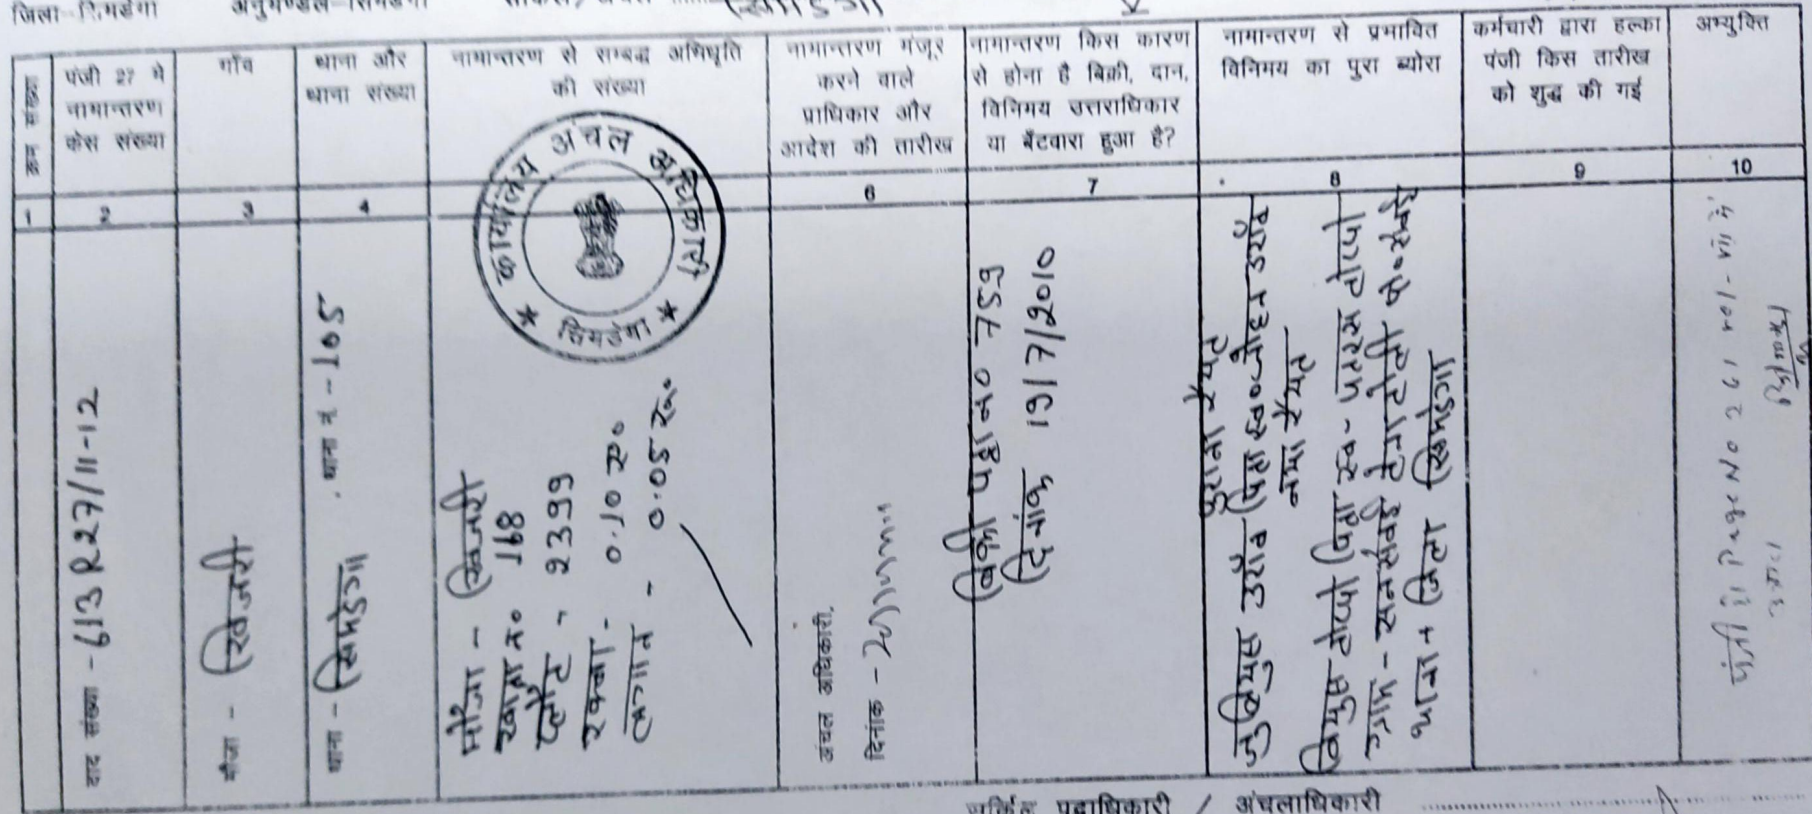 जिला-सिमडेगा अनुमण्डल-सिमडेगा
क्रम संख्या
पंजी 27 मे
नामान्तरण
केस संख्या
गाँव
थाना और
थाना संख्या
नामान्तरण से सम्बद्ध अभिधृति
की संख्या
नामान्तरण मंजूर
करने वाले
प्राधिकार और
आदेश की तारीख
नामान्तरण किस कारण
से होना है बिक्री, दान,
विनिमय उत्तराधिकार
या बँटवारा हुआ है?
नामान्तरण से प्रभावित
विनिमय का पुरा ब्योरा
कर्मचारी द्वारा हल्का
पंजी किस तारीख
को शुद्ध की गई
अभ्युक्ति
1 2 3 4 6 7 8 9 10
वाद संख्या - 613 R27/11-12
मौजा - खिजरी
थाना - सिमडेगा . थाना नं - 105
मौजा - खिजरी
खाता न० 168
प्लौट - 2399
रकबा - 0.10 ए०
लगान - 0.05 रू०
कार्यालय अंचल अधिकारी
सिमडेगा
अंचल अधिकारी,
दिनांक -
बिक्री पट्टा न० 759
दिनांक 19/7/2010
पुराना रैयत
जुलियुस उराँव पिता स्व० जोहन उराँव
नया रैयत
बियुस टोप्पो पिता स्व- पतरस टोप्पो
ग्राम - सनसेवई टेंगाटोली पो० सेवई
थाना + जिला सिमडेगा
पंजी II Page No 261 Vol - VII में
सर्किल पदाधिकारी / अंचलाधिकारी